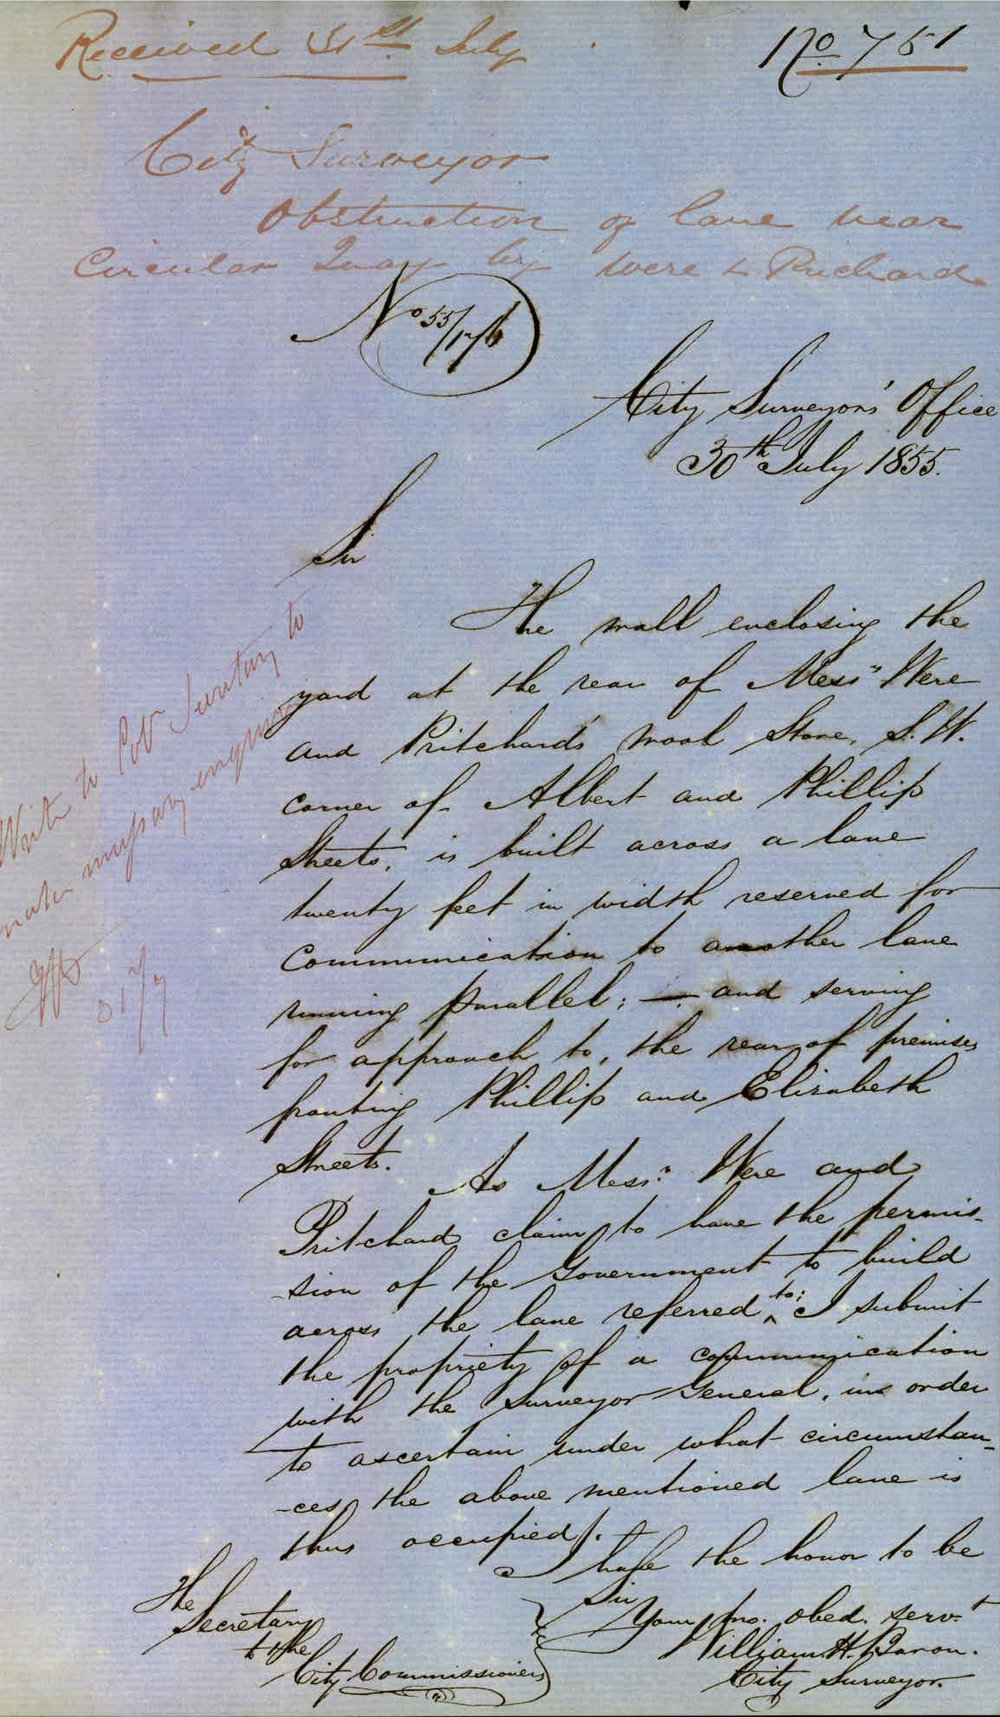 Received 31st July
No 751
City Surveyor
Obstruction of lane near
Circular Quay by Were & Prichard
No 55/176
City Surveyors' Office
30th July 1855.
Sir
The wall enclosing the
yard at the rear of Messrs Were
and Pritchards wool Store, S.W.
corner of Albert and Phillip
Streets, is built across a lane
twenty feet in width reserved for
communication to another lane
running parallel; — and serving
for approach to, the rear of premises
fronting Phillip and Elizabeth
Streets.
As Messrs Were and
Pritchard claim to have the permis-
-sion of the Government to build
across the lane referred to; I submit
the propriety of a communication
with the Surveyor General, in order
to ascertain under what circumstan-
-ces the above mentioned lane is
thus occupied.
I have the honor to be
Sir
Your mo. obed. servt
William H. Baron.
City Surveyor.
The
Secretary
to the
City Commissioners
Write to Col Secretary to
make necessary enquiries
31/7